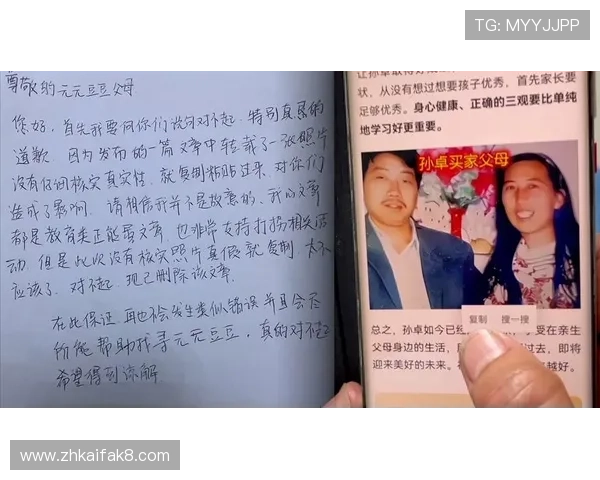 TG: MYYJJPP
尊敬的元元豆豆父母
您好，首先我要向你们说句对不起，特别真恳的
道歉，因为发布的一篇文章中转载了一张照片
没有仔细核实真实性，就复制粘贴过来，对你们
造成了影响，请相信我并不是故意的，我的文章
都是教育类正能量文章，也非常支持打拐相关活
动，但是此次没有核实照片真假就复制，太不
应该了，对不起，现已删除该文章。
在此保证，再也不会发生类似错误并且会尽
所能帮助找寻元元豆豆，真的对不起
希望得到谅解
状，从没有想过想要孩子优秀，首先家长要
足够优秀。身心健康、正确的三观要比单纯
地学习好更重要。
孙卓买家父母
复制 搜一搜
总之，孙卓如今已经 受在亲生
父母身边的生活， 过去，即将
迎来美好的未来。 越好。
www.zhkaifak8.com